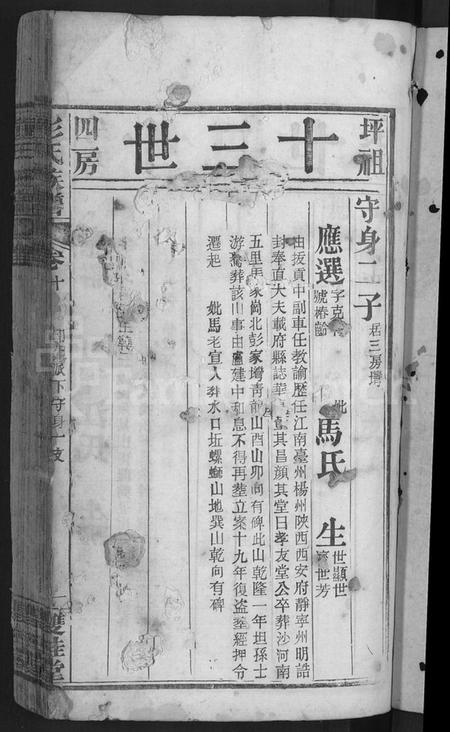 坪祖
十三世
四房
守身二子 居三房塆
應選 字克 號椿齡
妣馬氏
生 世顯 世 濟 世芳
由拔貢中副車任教諭歷任江南臺州楊州陝西西安府靜寧州明誥
封奉直大夫載府縣誌華 其昌顏其堂曰孝友堂公卒葬沙河南
五里馬家崗北彭家塆靑龍山酉山卯向有碑此山乾隆一年坦孫士
游 葬該山事由盧建中和息不得再塟立案十九年復盜塟經押令
遷起 妣馬老宜人葬水口坵螺螄山地巽山乾向有碑
彭氏族譜
卷十
派下守身一支
雙桂堂